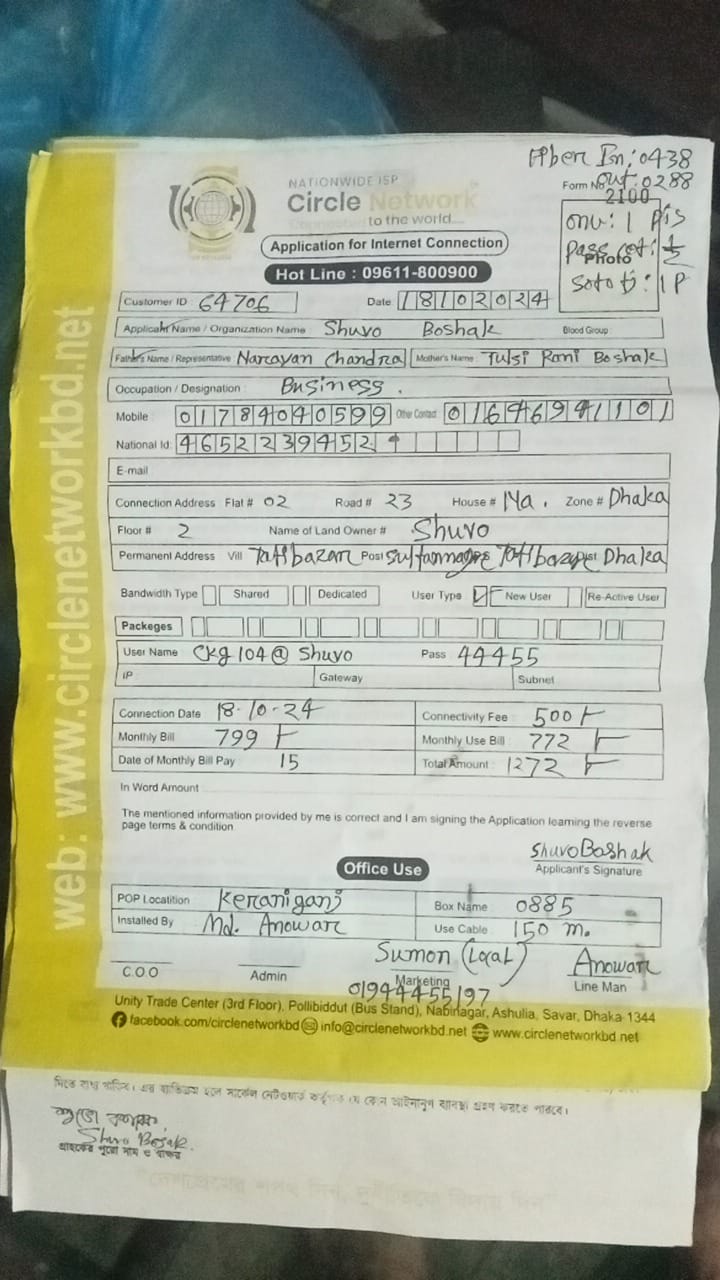 Fiber In: 0438
Out: 0288
Form No 2100
NATIONWIDE ISP
Circle Network
to the world....
onu: 1 Pis
Photo
Application for Internet Connection
Hot Line : 09611-800900
Customer ID : 64706 Date 18102024
Applicant Name / Organization Name : Shuvo Boshak Blood Group :
Father's Name / Representative Narayan Chandra Mother's Name : Tulsi Rani Boshak
Occupation / Designation : Business .
Mobile : 01784040599 Other Contact 01646941101
National Id: 4652239452
E-mail
Connection Address Flat # 02 Road # 23 House # 14a . Zone # Dhaka
Floor # 2 Name of Land Owner # Shuvo
Permanent Address Vill Tatibazar Post Dist Dhaka
Bandwidth Type Shared Dedicated User Type New User Re-Active User
Packeges
User Name Ckg104@Shuvo Pass 44455
IP Gateway Subnet
Connection Date 18-10-24 Connectivity Fee 500
Monthly Bill 799 Monthly Use Bill : 772
Date of Monthly Bill Pay 15 Total Amount : 1272
In Word Amount
The mentioned information provided by me is correct and I am signing the Application learning the reverse
page terms & condition
Shuvo Boshak
Applicant's Signature
Office Use
POP Locatition Keraniganj Box Name : 0885
Installed By Md. Anowar Use Cable : 150 m.
Sumon (Local) Anowar
C.O.O Admin Marketing Line Man
01944455197
Unity Trade Center (3rd Floor), Pollibiddut (Bus Stand), Nabinagar, Ashulia, Savar, Dhaka-1344
facebook.com/circlenetworkbd info@circlenetworkbd.net www.circlenetworkbd.net
web: www.circlenetworkbd.net
দিতে বাধ্য থাকিব। এর ব্যতিক্রম হলে সার্কেল নেটওয়ার্ক কর্তৃপক্ষ যে কোন আইনানুগ ব্যবস্থা গ্রহণ করতে পারবে।
Shuvo Bosak.
গ্রাহকের পুরো নাম ও স্বাক্ষর